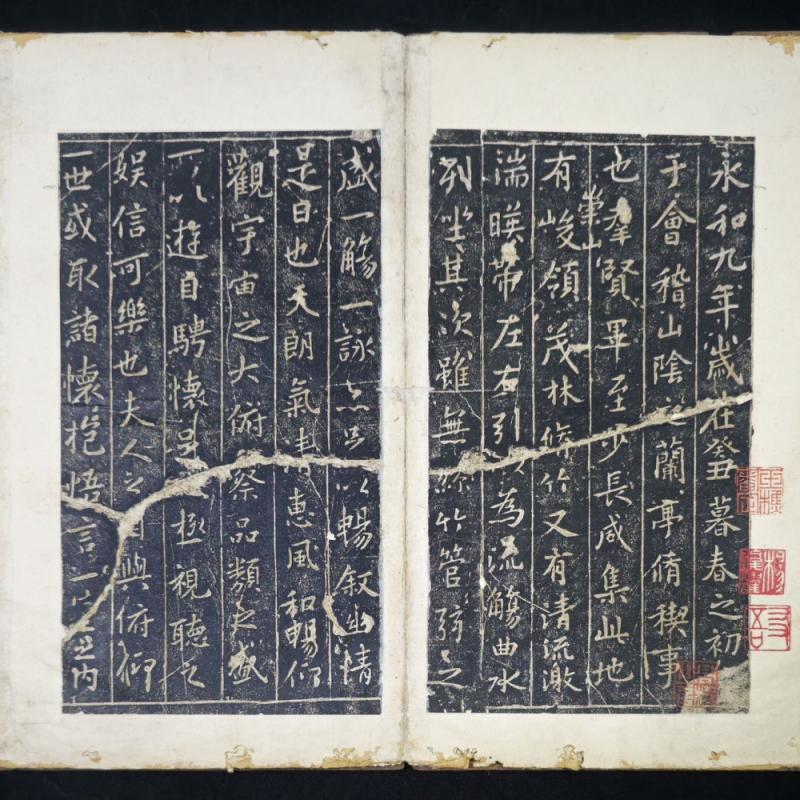 永和九年歲在癸丑暮春之初
于會稽山陰之蘭亭脩稧事
也羣賢畢至少長咸集此地
崇山
有峻領茂林脩竹又有清流激
湍暎帶左右引以為流觴曲水
列坐其次雖無絲竹管弦之
盛一觴一詠亦足以暢敘幽情
是日也天朗氣清惠風和暢仰
觀宇宙之大俯察品類之盛
所以遊目騁懷足以極視聽之
娛信可樂也夫人之相與俯仰
一世或取諸懷抱悟言一室之內